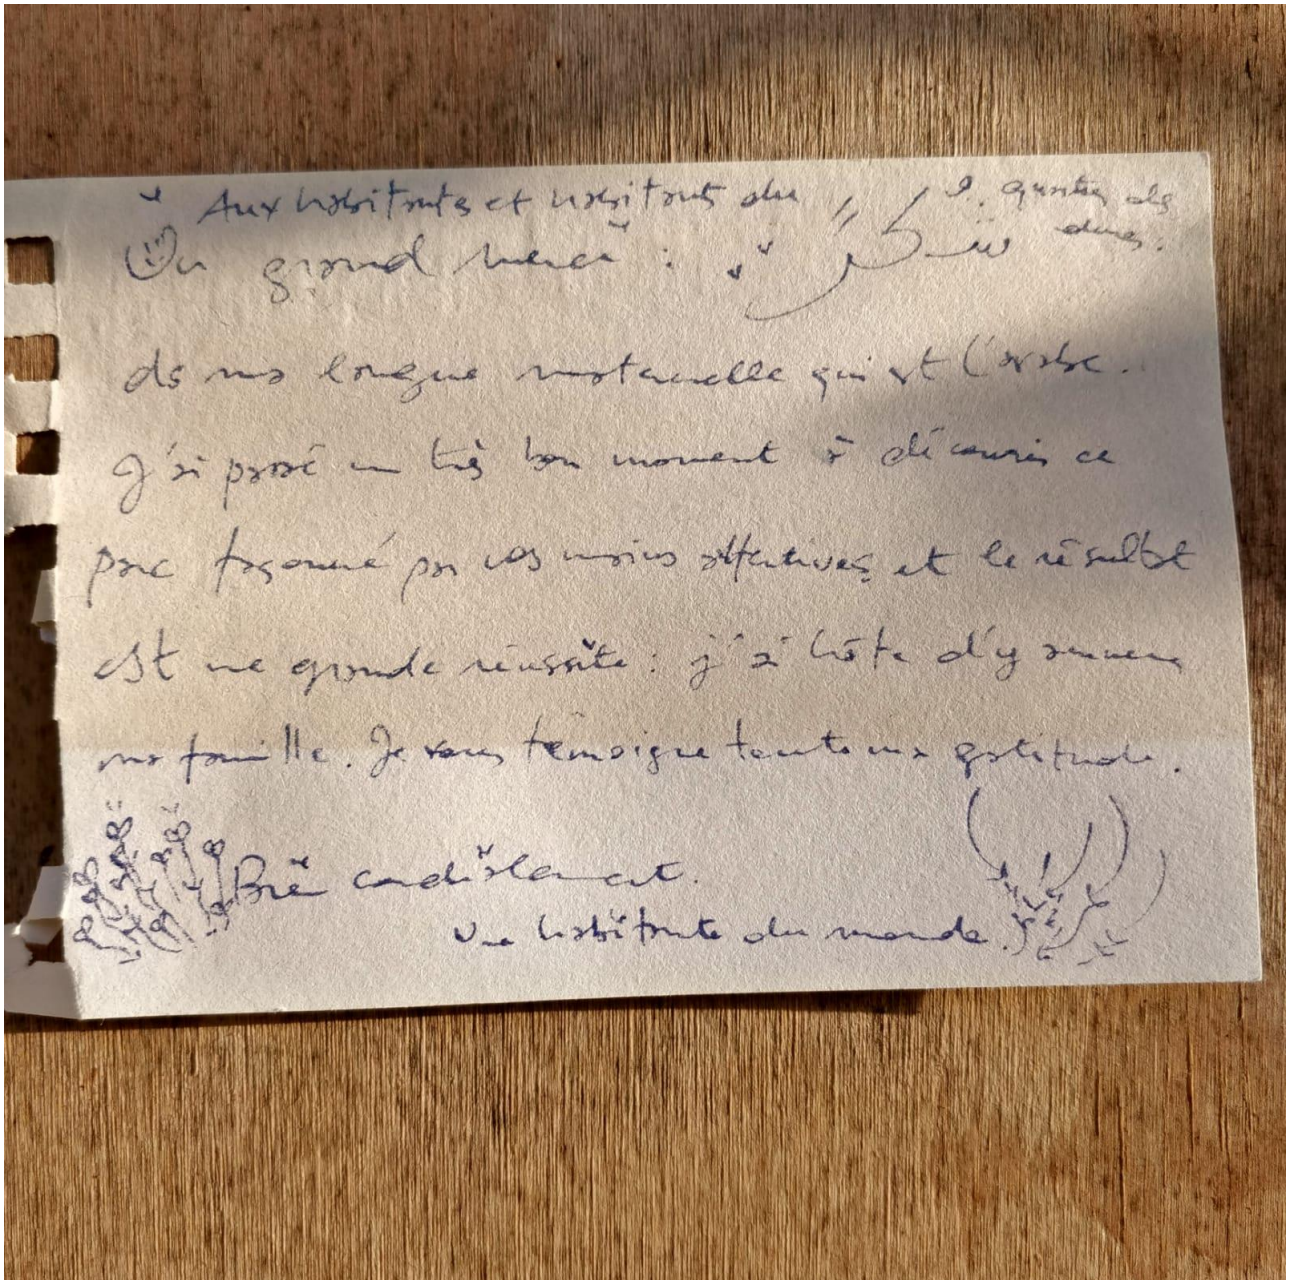 Aux habitantes et habitants du quartier des
Un grand merci : شكرا
ds ma langue maternelle qui est l'arabe.
J'ai passé un très bon moment à découvrir ce
parc façonné par vos mains attentives et le résultat
est une grande réussite : j'ai hâte d'y amener
ma famille. Je vous témoigne toute ma gratitude.
Bien cordialement.
Une habitante du monde.